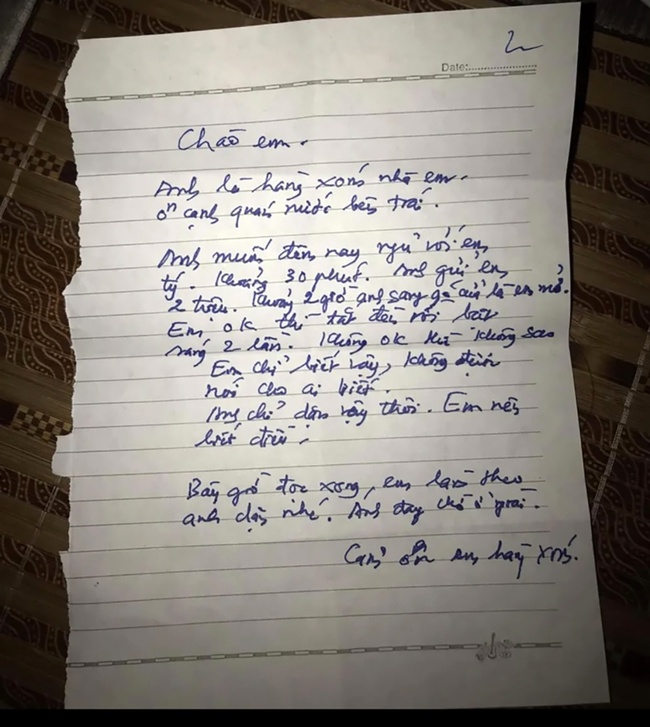 2
Date:
Chào em.
Anh là hàng xóm nhà em.
ở cạnh quán nước bên trái.
Anh muốn đêm nay ngủ với em
tý. Khoảng 30 phút. Anh gửi em
2 triệu. Khoảng 2 giờ anh sang gõ cửa là em mở.
Em ok thì tắt đèn rồi bật
sáng 2 lần. Không ok thì không sao
Em chỉ biết vậy, không được
nói cho ai biết.
Anh chỉ dặn vậy thôi. Em nên
biết điều.
Bây giờ đọc xong, em làm theo
anh dặn nhé. Anh đang chờ ở
Cảm ơn em hàng xóm.